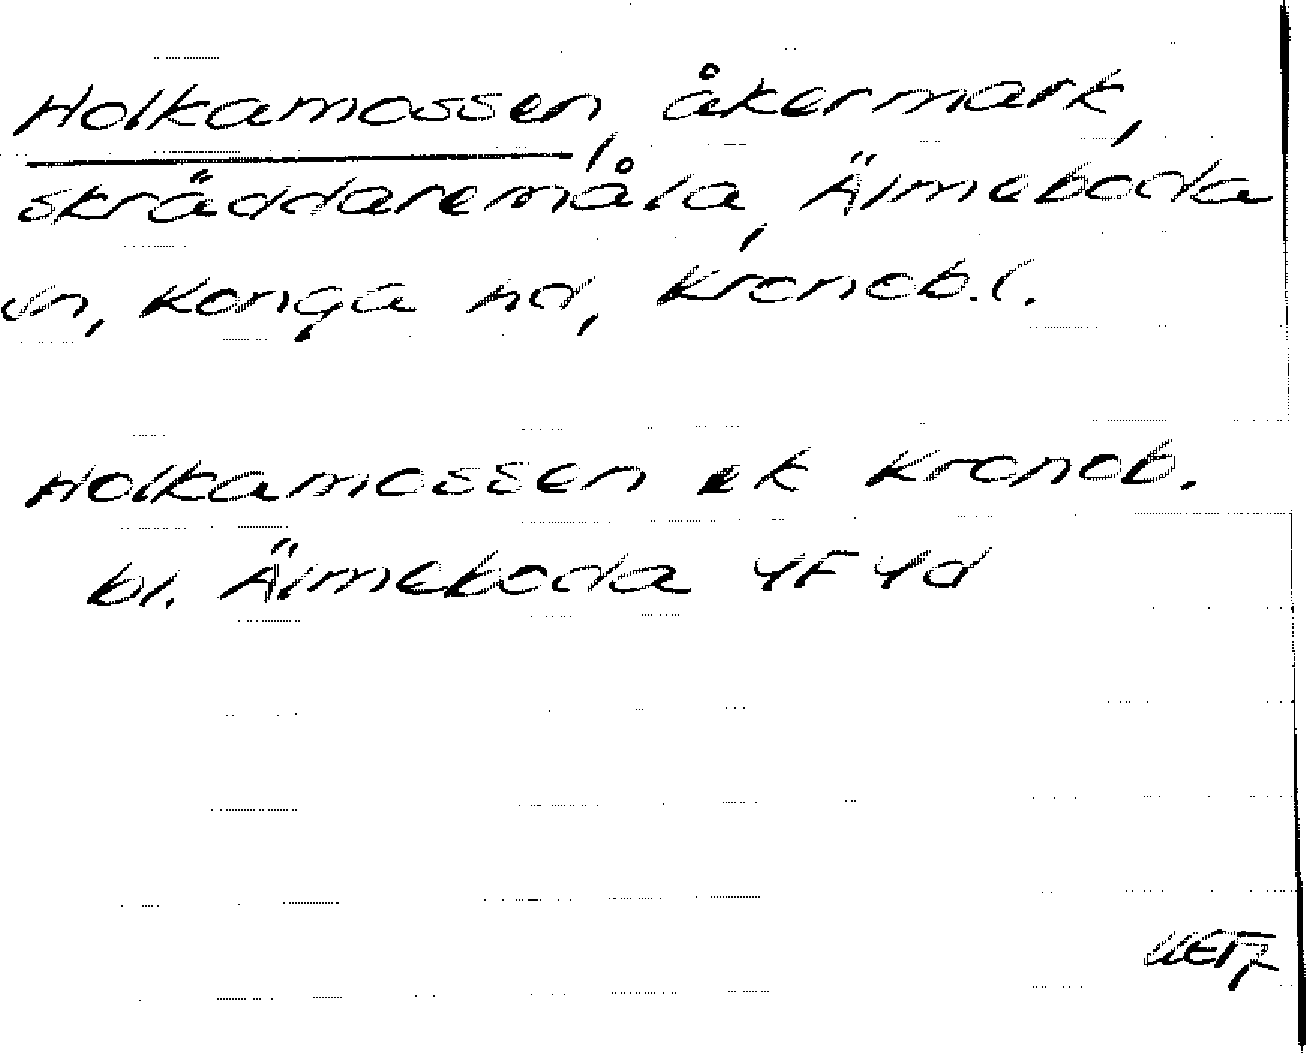 Holkamossen, åkermark,
skräddaremåla, Älmeboda
sn, Konga hd, Kronob.l.
Holkamossen ek Kronob.
bl. Älmeboda 4F 4d